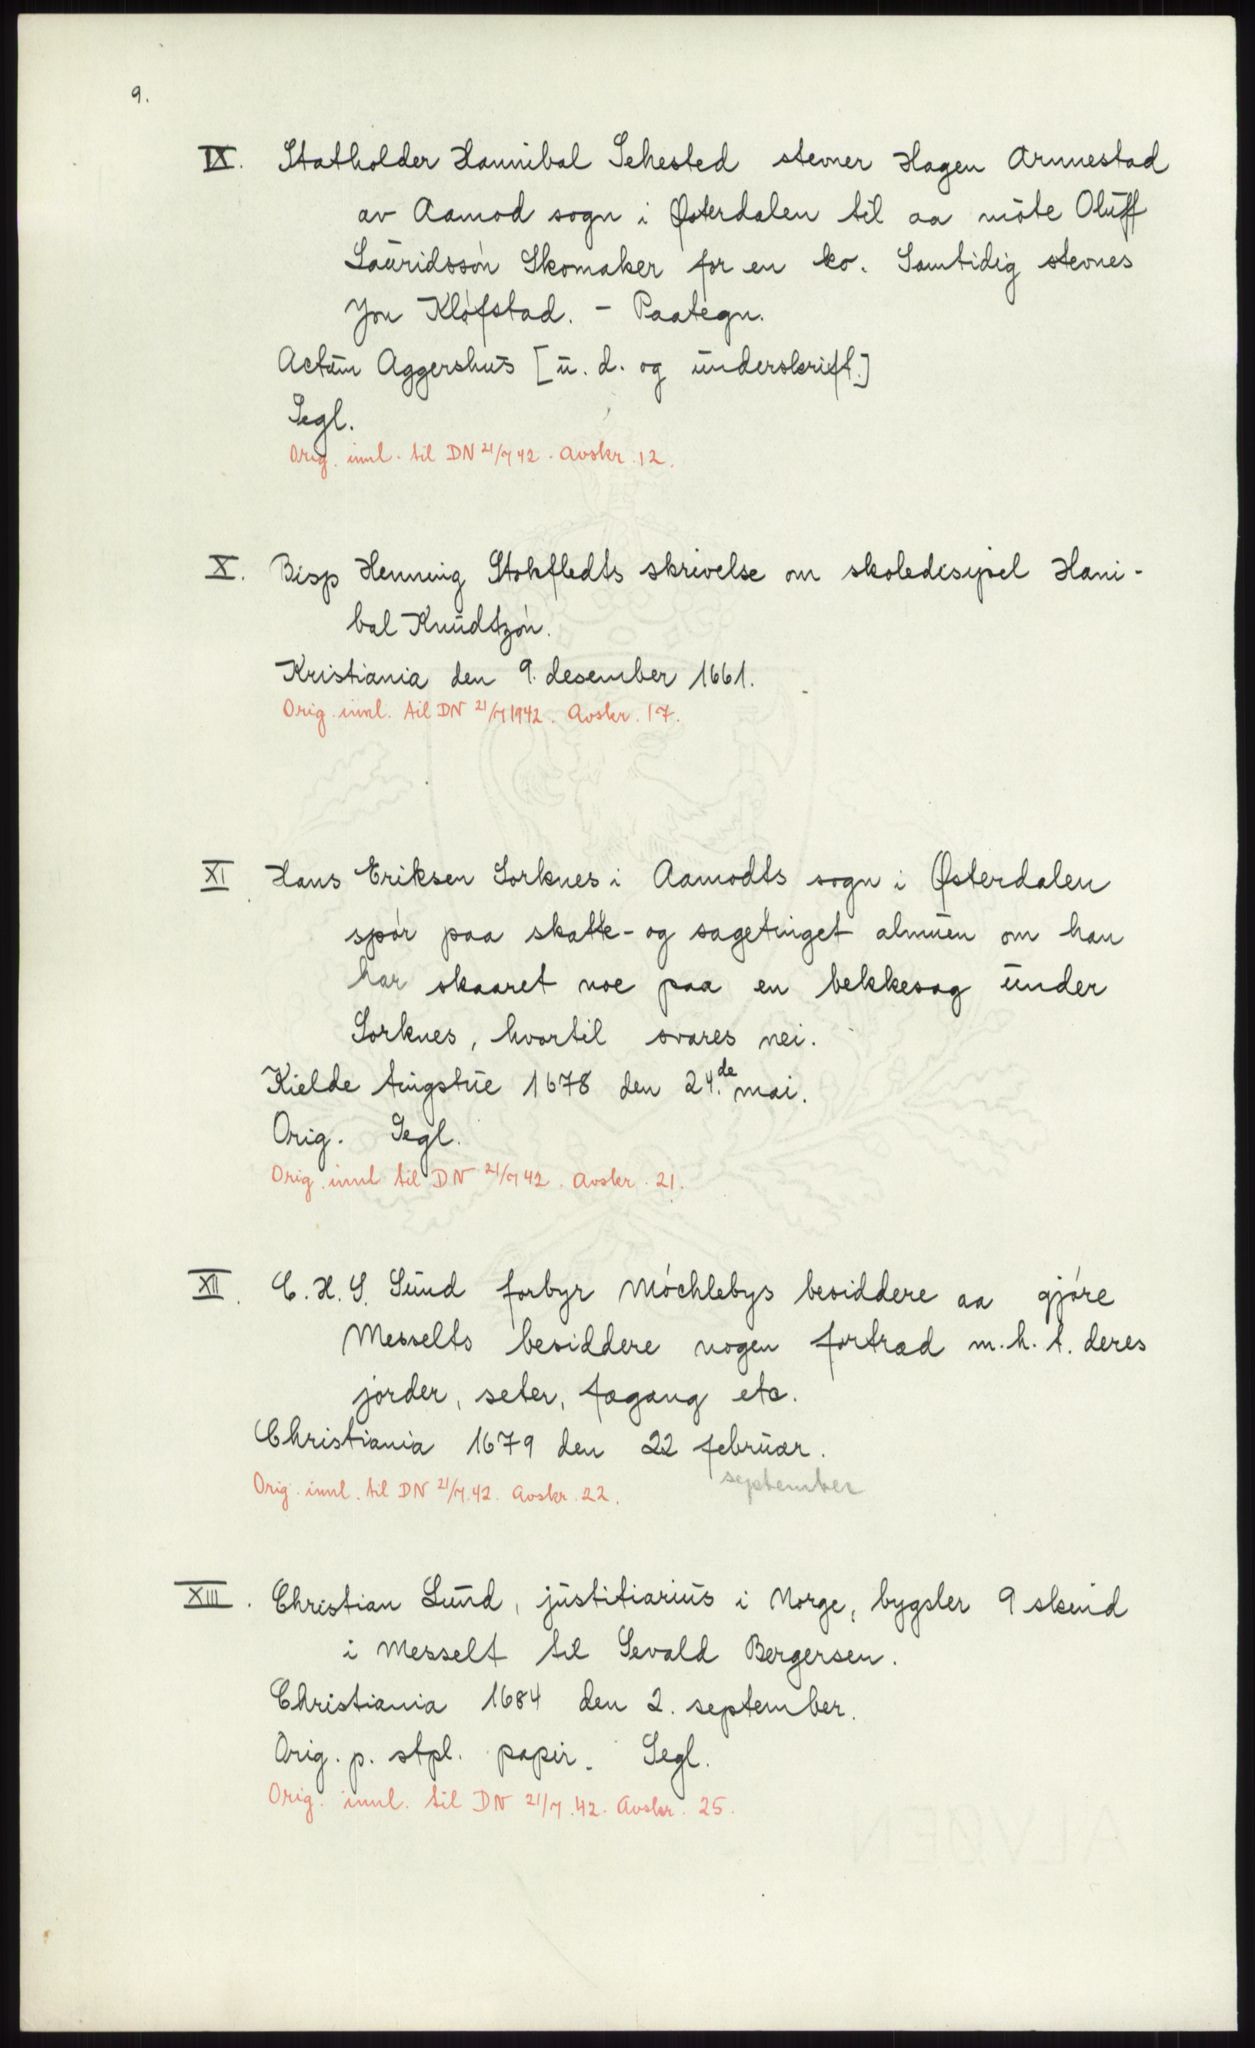 9.
IX. Statholder Hannibal Sehested stevner Hagen Arnnestad
av Aamod sogn i Østerdalen til aa möte Oluff
Lauridssön Skomaker for en ko. Samtidig stevnes
Jon Klöfstad. - Paategn.
Actum Aggershus [u. d. og underskrift.]
Segl.
Orig. innl. til DN 21/7 42. Avskr. 12.
X. Bisp Henning Stokfledts skrivelse om skoledisipel Hani-
bal Knudtzón.
Kristiania den 9. desember 1661.
Orig. innl. til DN 21/7 1942. Avskr. 17.
XI Hans Eriksen Sorknes i Aamodts sogn i Østerdalen
spór paa skatte- og sagetinget almuen om han
har skaaret noe paa en bekkesag under
Sorknes, hvortil svares nei.
Kielde tingstue 1678 den 24.de mai.
Orig. Segl.
Orig. innl til DN 21/7 42. Avskr. 21.
XII. C. H. S. Lund forbyr Móchlebys besiddere aa gjóre
Messelts besiddere nogen fortræd m. h. t. deres
jorder, seter, fægang etc.
Christiania 1679 den 22 februar.
september
Orig. innl. til DN 21/7. 42. Avskr. 22.
XIII. Christian Lund, justitiarius i Norge, bygsler 9 skind
i Messelt til Sevald Bergersen.
Christiania 1684 den 2. september.
Orig. p. stpl. papir. Segl.
Orig. innl. til DN 21/7. 42. Avskr. 25.
ALVØEN